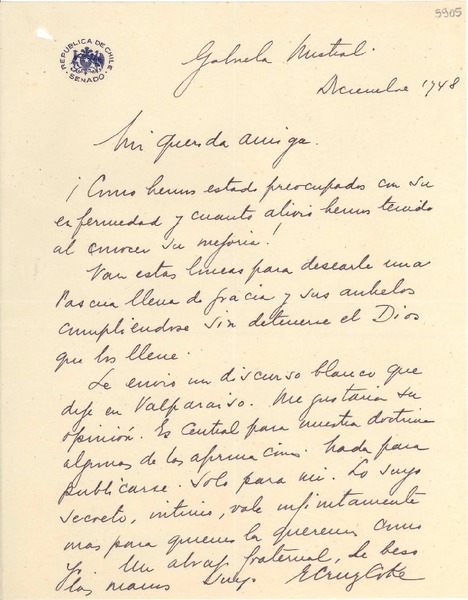 3905
REPUBLICA DE CHILE
SENADO
Gabriela Mistral.
Diciembre 1948
Mi querida amiga.
¡Como hemos estado preocupados con su
enfermedad y cuanto alivio hemos tenido
al conocer su mejoria!
Van estas lineas para desearle una
Pascua llena de gracia y sus anhelos
cumpliendose sin detenerse el Dios
que los llene.
Le envio un discurso blanco que
dije en Valparaiso. Me gustaria su
opinión. Es central para nuestra doctrina
algunas de las afirmaciones. Nada para
publicarse. Solo para mi. Lo suyo
secreto, intimo, vale infinitamente
mas para quienes la queremos como
yo. Un abrazo fraternal, le beso
las manos Suyo ECruzCoke